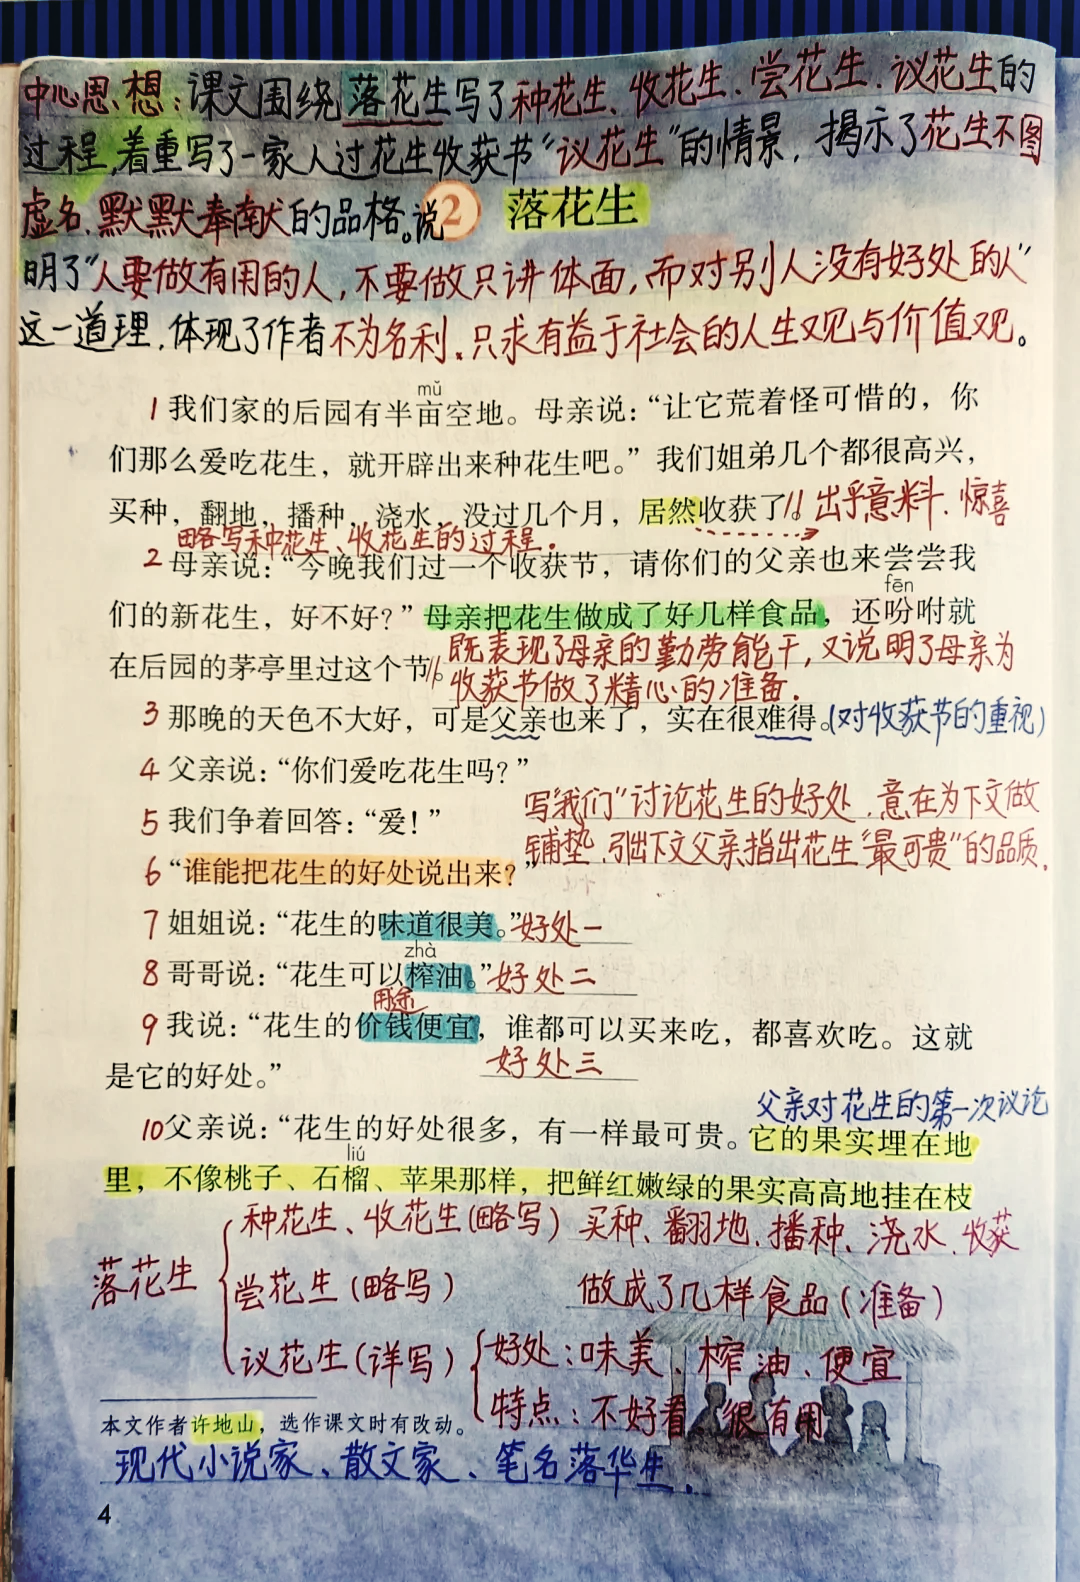 中心思想：课文围绕落花生写了种花生、收花生、尝花生、议花生的
过程，着重写了一家人过花生收获节“议花生”的情景，揭示了花生不图
虚名、默默奉献的品格。说
2 落花生
明了“人要做有用的人，不要做只讲体面，而对别人没有好处的人”
这一道理，体现了作者不为名利，只求有益于社会的人生观与价值观。
mǔ
1 我们家的后园有半亩空地。母亲说：“让它荒着怪可惜的，你
们那么爱吃花生，就开辟出来种花生吧。”我们姐弟几个都很高兴，
买种，翻地，播种，浇水，没过几个月，居然收获了。 出乎意料、惊喜
略写种花生、收花生的过程。
2 母亲说：“今晚我们过一个收获节，请你们的父亲也来尝尝我
fēn
们的新花生，好不好？”母亲把花生做成了好几样食品，还吩咐就
在后园的茅亭里过这个节。 既表现了母亲的勤劳能干，又说明了母亲为
收获节做了精心的准备.
3 那晚的天色不大好，可是父亲也来了，实在很难得。(对收获节的重视)
4 父亲说：“你们爱吃花生吗？”
5 我们争着回答：“爱！”
写“我们”讨论花生的好处，意在为下文做
铺垫，引出下文父亲指出花生“最可贵”的品质.
6 “谁能把花生的好处说出来？”
7 姐姐说：“花生的味道很美。”好处一
zhà
8 哥哥说：“花生可以榨油。”好处二
用途
9 我说：“花生的价钱便宜，谁都可以买来吃，都喜欢吃。这就
是它的好处。” 好处三
父亲对花生的第一次议论
10 父亲说：“花生的好处很多，有一样最可贵。它的果实埋在地
liú
里，不像桃子、石榴、苹果那样，把鲜红嫩绿的果实高高地挂在枝
种花生、收花生(略写) 买种、翻地、播种、浇水、收获
落花生
尝花生(略写) 做成了几样食品(准备)
议花生(详写) 好处：味美、榨油、便宜
特点：不好看 很有用
本文作者许地山，选作课文时有改动。
现代小说家、散文家、笔名落华生.
4